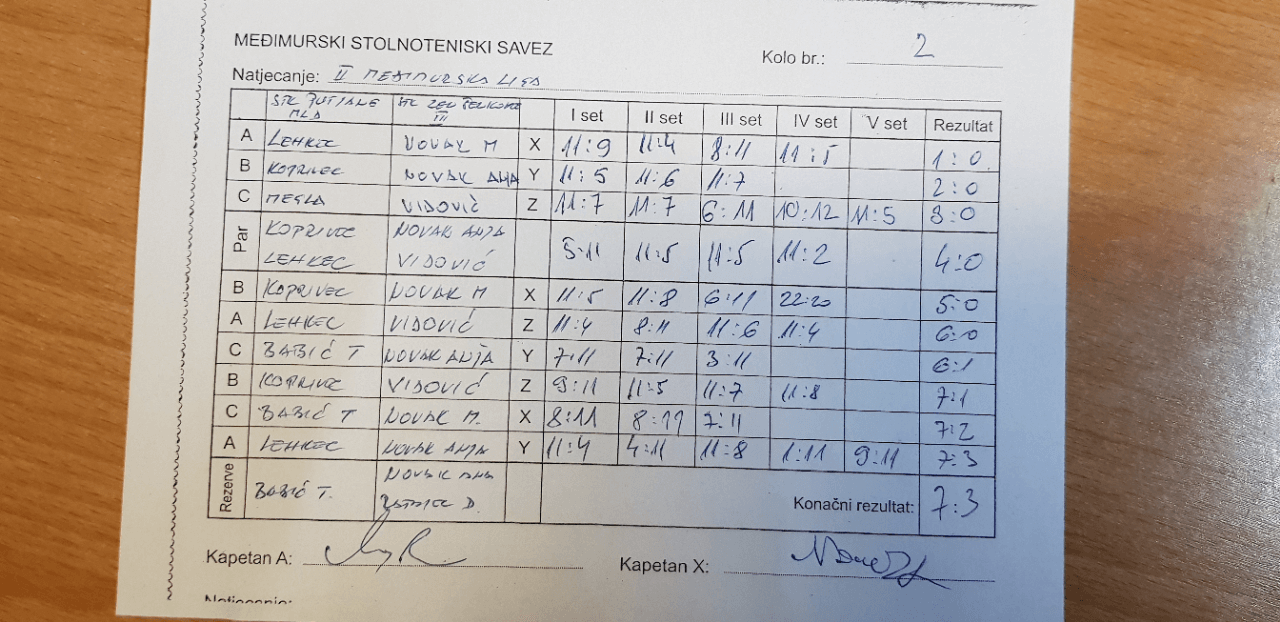 MEĐIMURSKI STOLNOTENISKI SAVEZ
Kolo br.: 2
Natjecanje: II MEĐIMURSKA LIGA
STK MLA III I set II set III set IV set V set Rezultat
A LEHKEC NOVAK M X 11:9 11:4 8:11 11:5 1:0
B KOPRIVEC NOVAK ANA Y 11:5 11:6 11:7 2:0
C VIDOVIĆ Z 11:7 11:7 6:11 10:12 11:5 3:0
Par KOPRIVEC NOVAK ANJA 5:11 11:5 11:5 11:2 4:0
LEHKEC VIDOVIĆ
B KOPRIVEC NOVAK M X 11:5 11:8 6:11 22:20 5:0
A LEHKEC VIDOVIĆ Z 11:4 8:11 11:6 11:4 6:0
C BABIĆ T NOVAK ANJA Y 7:11 7:11 3:11 6:1
B KOPRIVEC VIDOVIĆ Z 9:11 11:5 11:7 11:8 7:1
C BABIĆ T NOVAK M. X 8:11 8:11 7:11 7:2
A LEHKEC NOVAK ANJA Y 11:4 4:11 11:8 1:11 9:11 7:3
Rezerve BABIĆ T. NOVAK ANA
D. Konačni rezultat: 7:3
Kapetan A: Kapetan X:
Natjecanje: